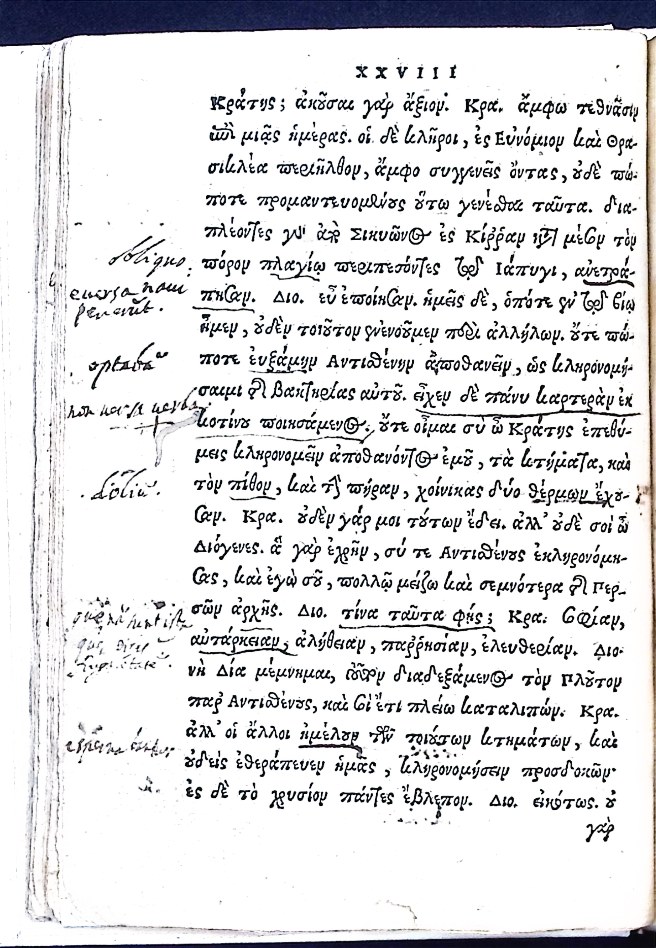 XXVIII
Κράτης; ἀκοῦσαι γὰρ ἄξιον. Κρα. ἄμφω τεθνᾶσιν
ἐπὶ μιᾶς ἡμέρας. οἱ δὲ κλῆροι, ἐς Εὐνόμιον καὶ Θρα-
σικλέα περιῆλθον, ἄμφο συγγενεῖς ὄντας, οὐδὲ πώ-
ποτε προμαντευομένους οὕτω γενέσθαι ταῦτα. δια-
πλέοντες γὰρ ἀπὸ Σικυῶνος ἐς Κίρραν κατὰ μέσον τὸν
πόρον πλαγίῳ περιπεσόντες τῷ Ιάπυγι, ἀνετρά-
πησαν. Διο. εὖ ἐποίησαν. ἡμεῖς δὲ, ὁπότε ἐν τῷ βίῳ
ἦμεν, οὐδὲν τοιοῦτον ἐνενοοῦμεν περὶ ἀλλήλων. οὔτε πώ-
ποτε εὐξάμην Αντισθένην ἀποθανεῖν, ὡς κληρονομή-
σαιμι τῆς βακτηρίας αὐτοῦ. εἶχεν δὲ πάνυ καρτερὰν ἐκ
κοτίνου ποιησάμενος, οὔτε οἶμαι σὺ ὦ Κράτης ἐπεθύ-
μεις κληρονομεῖν ἀποθανόντος ἐμοῦ, τὰ κτήματα, καὶ
τὸν πίθον, καὶ τὴν πήραν, χοίνικας δύο θέρμων ἔχου-
σαν. Κρα. οὐδὲν γάρ μοι τούτων ἔδει. ἀλλ' οὐδὲ σοὶ ὦ
Διόγενες. ἃ γὰρ ἐχρῆν, σύ τε Αντισθένους ἐκληρονόμη-
σας, καὶ ἐγὼ σοῦ, πολλῷ μείζω καὶ σεμνότερα τῆς Περ-
σῶν ἀρχῆς. Διο. τίνα ταῦτα φής; Κρα. σοφίαν,
αὐτάρκειαν, ἀλήθειαν, παρρησίαν, ἐλευθερίαν. Διο.
νὴ Δία μέμνημαι, τοῦτον διαδεξάμενος τὸν Πλοῦτον
παρ' Αντισθένους, καὶ σοὶ ἔτι πλείω καταλιπών. Κρα.
ἀλλ' οἱ ἄλλοι ἠμέλουν τῶν τοιούτων κτημάτων, καὶ
οὐδεὶς ἐθεράπευεν ἡμᾶς, κληρονομήσειν προσδοκῶν·
ἐς δὲ τὸ χρυσίον πάντες ἔβλεπον. Διο. εἰκότως. οὐ
γὰρ
obliquo
euersa naui
perierunt.
optabā